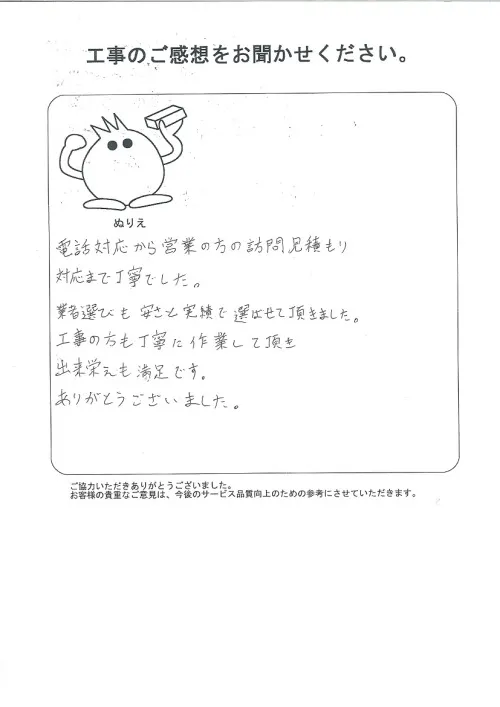 工事のご感想をお聞かせください。
ぬりえ
電話対応から営業の方の訪問見積もり
対応まで丁寧でした。
業者選びも安さと実績で選ばせて頂きました。
工事の方も丁寧に作業して頂き
出来栄えも満足です。
ありがとうございました。
ご協力いただきありがとうございました。
お客様の貴重なご意見は、今後のサービス品質向上のための参考にさせていただきます。